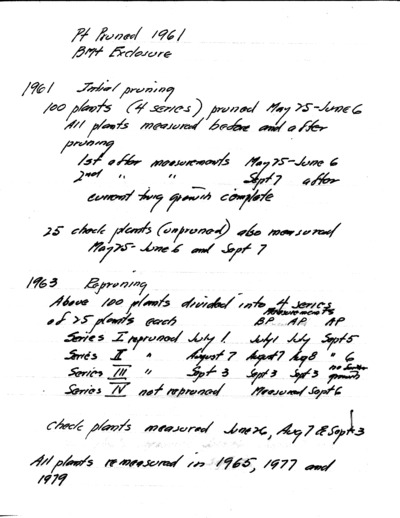 Pt Pruned 1961
BMt Exclosure
1961 Initial pruning
100 plants (4 series) pruned May 25-June 6
All plants measured before and after
pruning
1st after measurements May 25-June 6
2nd " " Sept 7 after
current twig growth complete
25 check plants (unpruned) also measured
May 25-June 6 and Sept 7
1963 Repruning
Above 100 plants divided into 4 series
Measurements
of 25 plants each BP AP AP
Series I repruned July 1 July 1 July Sept 5
Series II " August 7 August 7 Aug 8 " 6
Series III " Sept 3 Sept 3 Sept 3 no further growth
Series IV not repruned Measured Sept 6
Check plants measured June 26, Aug 7 & Sept 3
All plants remeasured in 1965, 1977 and
1979